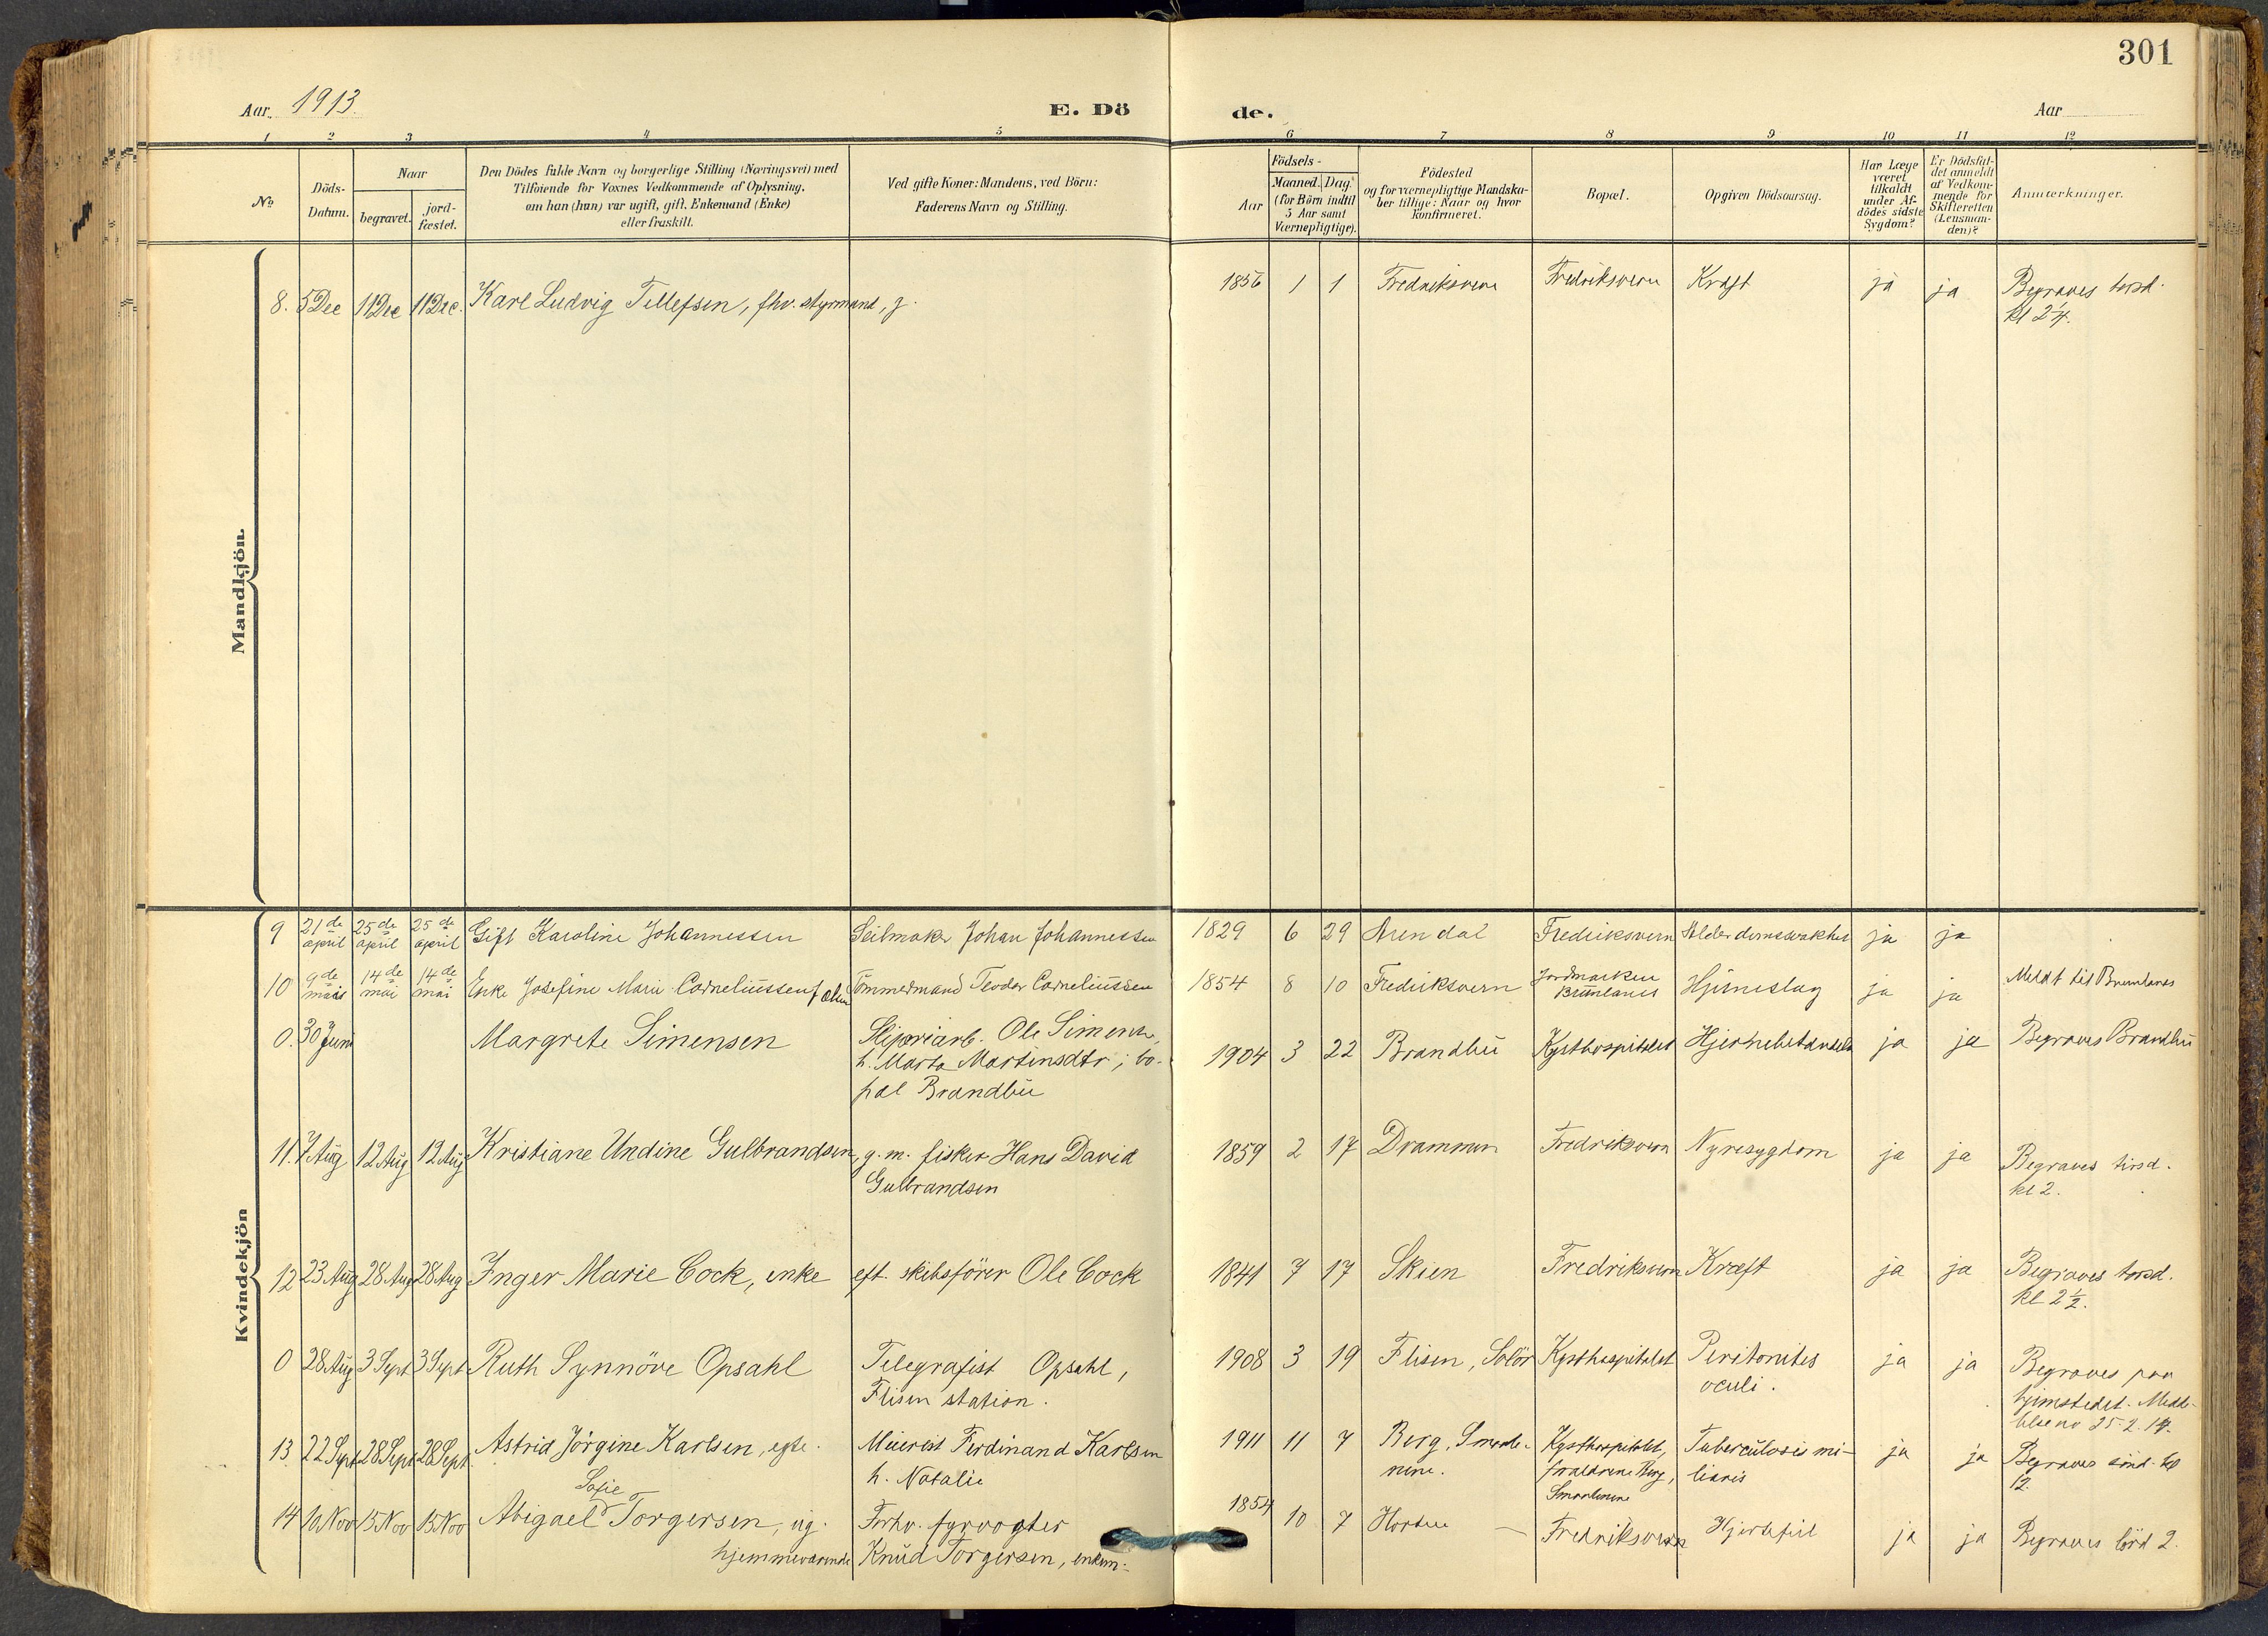 301
Aar. 1913.
E. Dö
de.
Aar
1 2 3 4 5 6 7 8 9 10 11 12
No
Döds-
Datum.
Naar
begravet.
jord-
fæstet.
Den Dödes fulde Navn og borgerlige Stilling (Næringsvei) med
Tilföiende for Voxnes Vedkommende af Oplysning,
om han (hun) var ugift, gift, Enkemand (Enke)
eller fraskilt.
Ved gifte Koner: Mandens, ved Börn:
Faderens Navn og Stilling.
Födsels-
Aar
Maaned. Dag
(for Börn indtil
5 Aar samt
Værnepligtige).
Födested
og for værnepligtige Mandska-
ber tillige: Naar og hvor
konfirmeret.
Bopæl.
Opgiven Dödsaarsag.
Har Læge
været
tilkaldt
under Af-
dödes sidste
Sygdom?
Er Dödsfal-
det anmeldt
af Vedkom-
mende for
Skifteretten
(Lensman-
den)?
Anmærkninger.
Mandkjön.
8. 5 Dec 11 Dec 11 Dec. Karl Ludvig Tellefsen, fhv. styrmand, g. 1856 1 1 Fredriksvern Fredriksvern Kræft ja ja Begraves torsd.
kl 2 1/4.
Kvindekjön
9 21de april 25de april 25de april Gift Karoline Johannessen Seilmaker Johan Johannessen 1829 6 29 Arendal Frederiksvern Alderdomssvakhet ja ja
10 9de mai 14de mai 14de mai Enke Josefine Marie Corneliussen Tömmermand Teodor Corneliussen 1854 8 10 Frederiksvern Jordmarken
Brunlanes Hjerneslag ja ja Meldt til Brunlanes
0. 30 Juni Margrete Simensen Sliperiarb. Ole Simensen,
h. Marta Martinsdtr; bo-
pæl Brandbu
1904 3 22 Brandbu Kysthospitalet Hjernebetændelse ja ja Begraves Brandbu
11. 7 Aug 12 Aug 12 Aug Kristiane Undine Gulbrandsen, g. m. fisker Hans David
Gulbrandsen
1859 2 17 Drammen Fredriksvern Nyresygdom ja ja Begraves tirsd.
kl 2.
12 23 Aug 28 Aug 28 Aug Inger Marie Cock, enke eft. skibsförer Ole Cock 1841 7 17 Skien Fredriksvern Kræft ja ja Begraves torsd.
kl 2 1/2.
0 28 Aug 3 Sept 3 Sept Ruth Synnöve Opsahl Telegrafist Opsahl,
Flisen station.
1908 3 19 Flisen, Solör Kysthospitalet Peritonites
oculi. ja ja Begraves paa
hjemstedet. Medd-
else no 25-2-14.
13 22 Sept 28 Sept 28 Sept Astrid Jörgine Karlsen, egte. Meierist Ferdinand Karlsen
h. Natalie
1911 11 7 Berg, Smaale-
nene. Kysthospitalet,
forældrene Berg,
Smaalenene Tuberculosis mi-
liaris ja ja Begraves sönd. kl
12.
14 10 Nov 15 Nov 15 Nov Abigael Sofie Torgersen, ug.
hjemmeværende Forhv. fyrvogter
Knud Torgersen, enkem.
1854 10 7 Horten Fredriksvern Hjertefeil ja ja Begraves lörd 2.